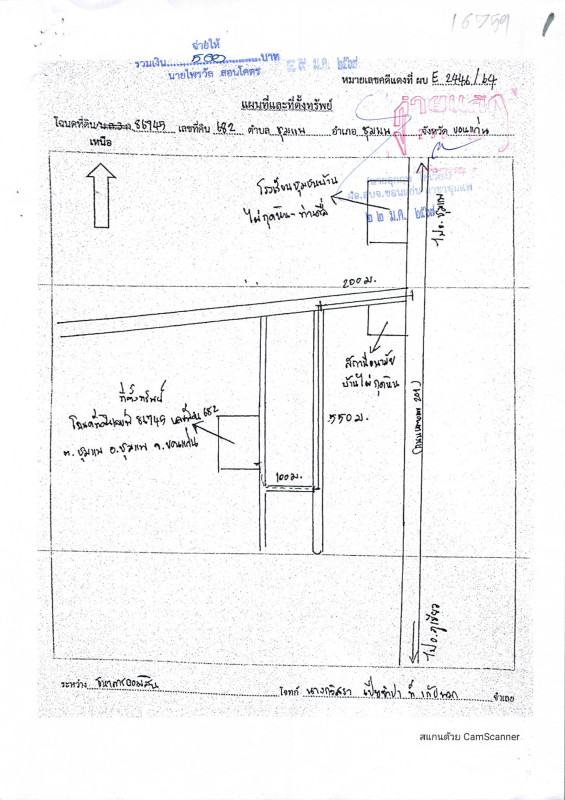 16799
1
จ่ายให้
รวมเงิน 500 บาท
นายไพรวัล สอนโคตร
ม.ค. ๒๕๖๗
หมายเลขคดีแดงที่ ผบ E 2446/64
แผนที่และที่ตั้งทรัพย์
โฉนดที่ดิน 86745 เลขที่ดิน 682 ตำบล ชุมแพ อำเภอ ชุมแพ จังหวัด ขอนแก่น
เหนือ
โรงเรียนชุมชนบ้าน
ไผ่กุดหิน-ท่านดื่ม
๒๒ ม.ค. ๒๕๖๗
ไป อ.ชุมแพ
200 ม.
สถานีอนามัย
บ้านไผ่กุดหิน
ที่ตั้งทรัพย์
โฉนดที่ดินเลขที่ 86745 เลขที่ดิน 682
ต.ชุมแพ อ.ชุมแพ จ.ขอนแก่น
550 ม.
100 ม.
(ถนนหมายเลข 201)
ไป อ.ภูเขียว
ระหว่าง ธนาคารออมสิน โจทก์ จำเลย
สแกนด้วย CamScanner